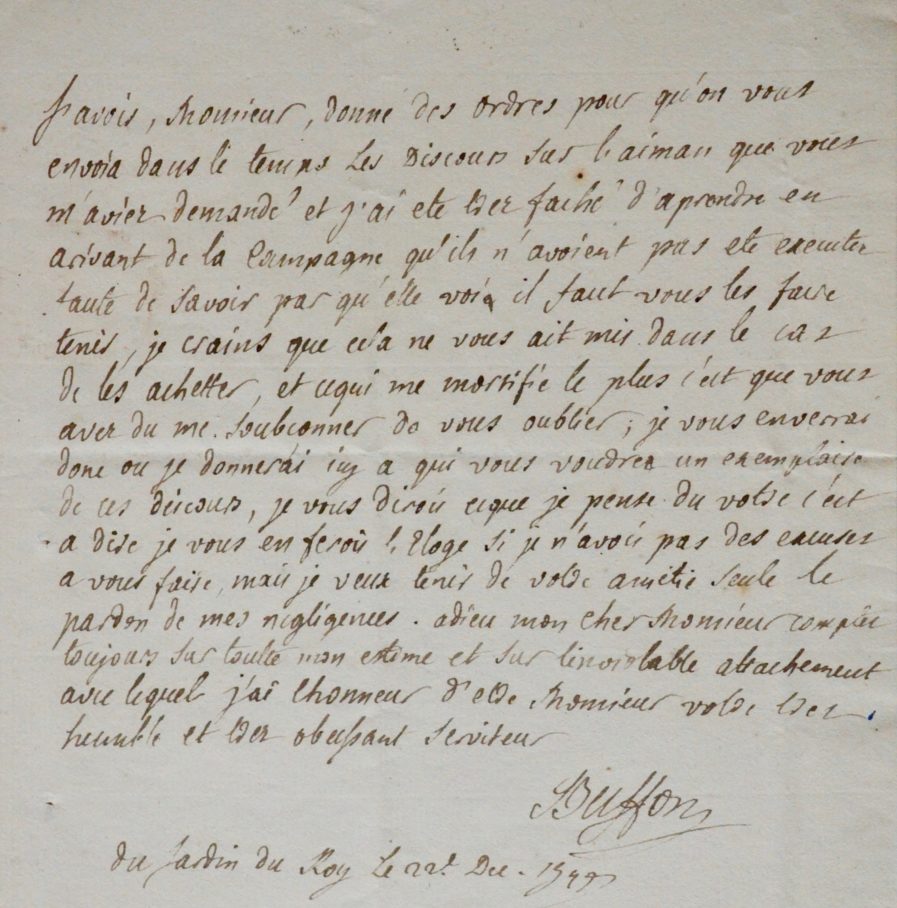 J'avois, Monsieur, donné des ordres pour qu'on vous
envoia dans le temps les Discours sur l'aiman que vous
m'aviez demandé et j'ai eté trez faché d'aprendre en
arivant de la Campagne qu'ils n'avoient pas eté executez
faute de savoir par qu'elle voie il faut vous les faire
tenir, je crains que cela ne vous ait mis dans le caz
de les achetter, et cequi me mortifie le plus c'est que vous
avez du me soubconner de vous oublier; je vous enverrai
donc ou je donnerai icy a qui vous voudrez un exemplaire
de ces discours, je vous dirois ceque je pense du votre c'est
a dire je vous en ferois l'Eloge si je n'avois pas des excuses
a vous faire, mais je veux tenir de votre amitié seule le
pardon de mes negligences. adieu mon cher Monsieur comptez
toujours sur toutte mon estime et sur l'inviolable attachement
avec lequel j'ai l'honneur d'etre Monsieur votre trez
humble et trez obeissant serviteur
Buffon
du Jardin du Roy le 22e Dec.